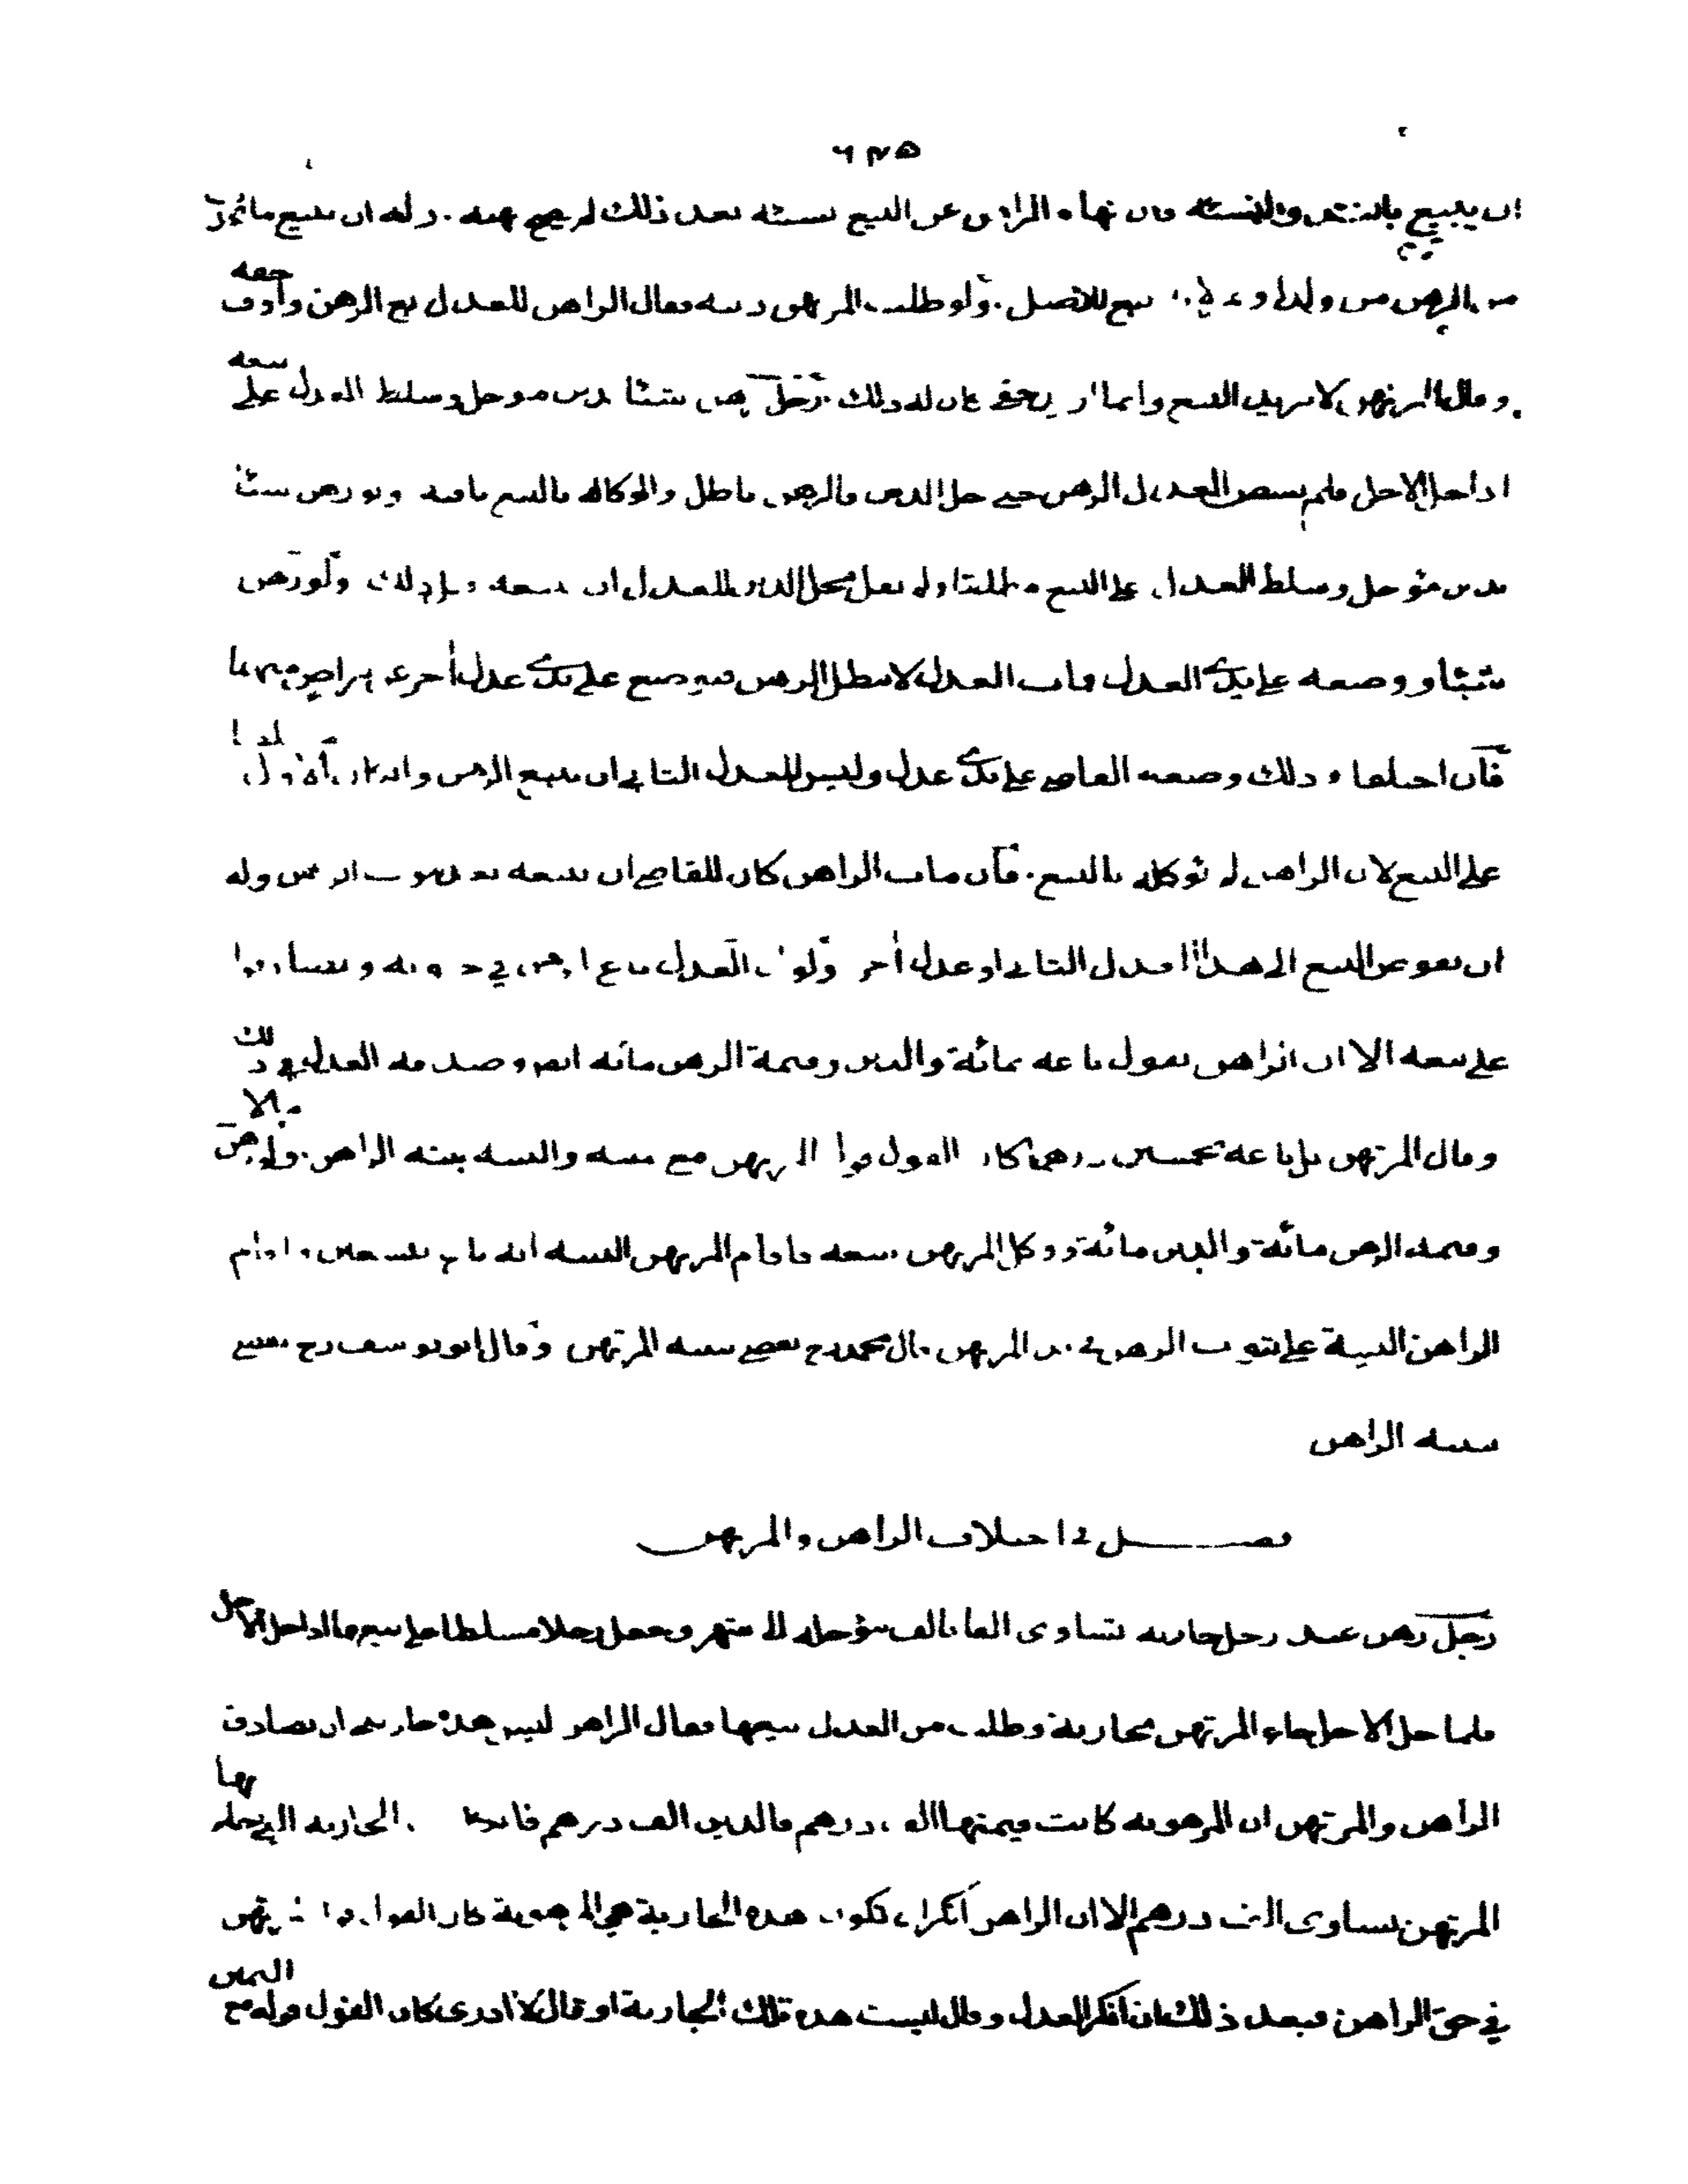 ان يبيع بالنقد والنسئة فان نهاه الراهن عن البيع نسئة بعد ذلك لم يصح نهيه . وله ان يبيع ما
من الرهن من ولد او تبع للاصل . ولو طلب المرتهن دينه فقال الراهن للعدل بع الرهن واوف حقه
وقال المرتهن لا اريد البيع وانما اريد حقى كان له ذلك . رجل رهن شيئا بدين موجل وسلط العدل على بيعه
اذا حل الاجل فلم يقبض العدل الرهن حتى حل الدين فالرهن باطل والوكالة بالبيع باقية ولو رهن شيئا
بدين مؤجل وسلط العدل على البيع مطلقا ولم يقل محل الدين للعدل ان يبيعه قبل ذلك ولو رهن
شيئا ووضعه على يدى العدل فمات العدل لا يبطل الرهن فيوضع على يدى عدل أخر عن تراض منهما
فان اختلفا فى ذلك وضعه القاضى على يدى عدل وليس للعدل الثانى ان يبيع الرهن وان كان الاول
على البيع لان الراهن لم يوكله بالبيع . فان مات الراهن كان للقاضى ان يبيعه بعد موت الراهن وله
ان يفوض البيع الى هذا العدل الثانى او عدل أخر ولو ان العدل باع الرهن فى وتصادقوا
على بيعه الا ان الراهن يقول باعه بمائة والدين وقيمة الرهن مائة ايضا وصدقه العدل فى ذلك
وقال المرتهن بل باعه بخمسين درهما كان القول قول المرتهن مع يمينه والبينة بينة الراهن . ولو رهن
وقيمة الرهن مائة والدين مائة ووكل المرتهن ببيعه فاقام المرتهن البينة انه باع بتسعين واقام
الراهن البينة على موت الرهن فى يد المرتهن قال محمد رح يقضى ببينة المرتهن وقال ابو يوسف رح يقضى
ببينة الراهن
فصـــــــل فى اختلاف الراهن والمرتهن
رجل رهن عند رجل جارية تساوى الفا بالف مؤجلة الى شهر وجعل رجلا مسلطا على بيعها اذا حل الاجل
فلما حل الاجل جاء المرتهن بجارية وطلب من العدل بيعها فقال الراهن ليس هذه جاريتى ان تصادق
الراهن والمرتهن ان المرهونة كانت قيمتها الف درهم والدين الف درهم فان كانت الجارية التى جاء بها
المرتهن تساوى الف درهم الا ان الراهن انكر ان تكون هذه الجارية هى المرهونة كان القول قول المرتهن
فى حق الراهن فبعد ذلك فان انكر العدل وقال ليست هذه تلك الجارية او قال لا ادرى كان القول قوله مع اليمين